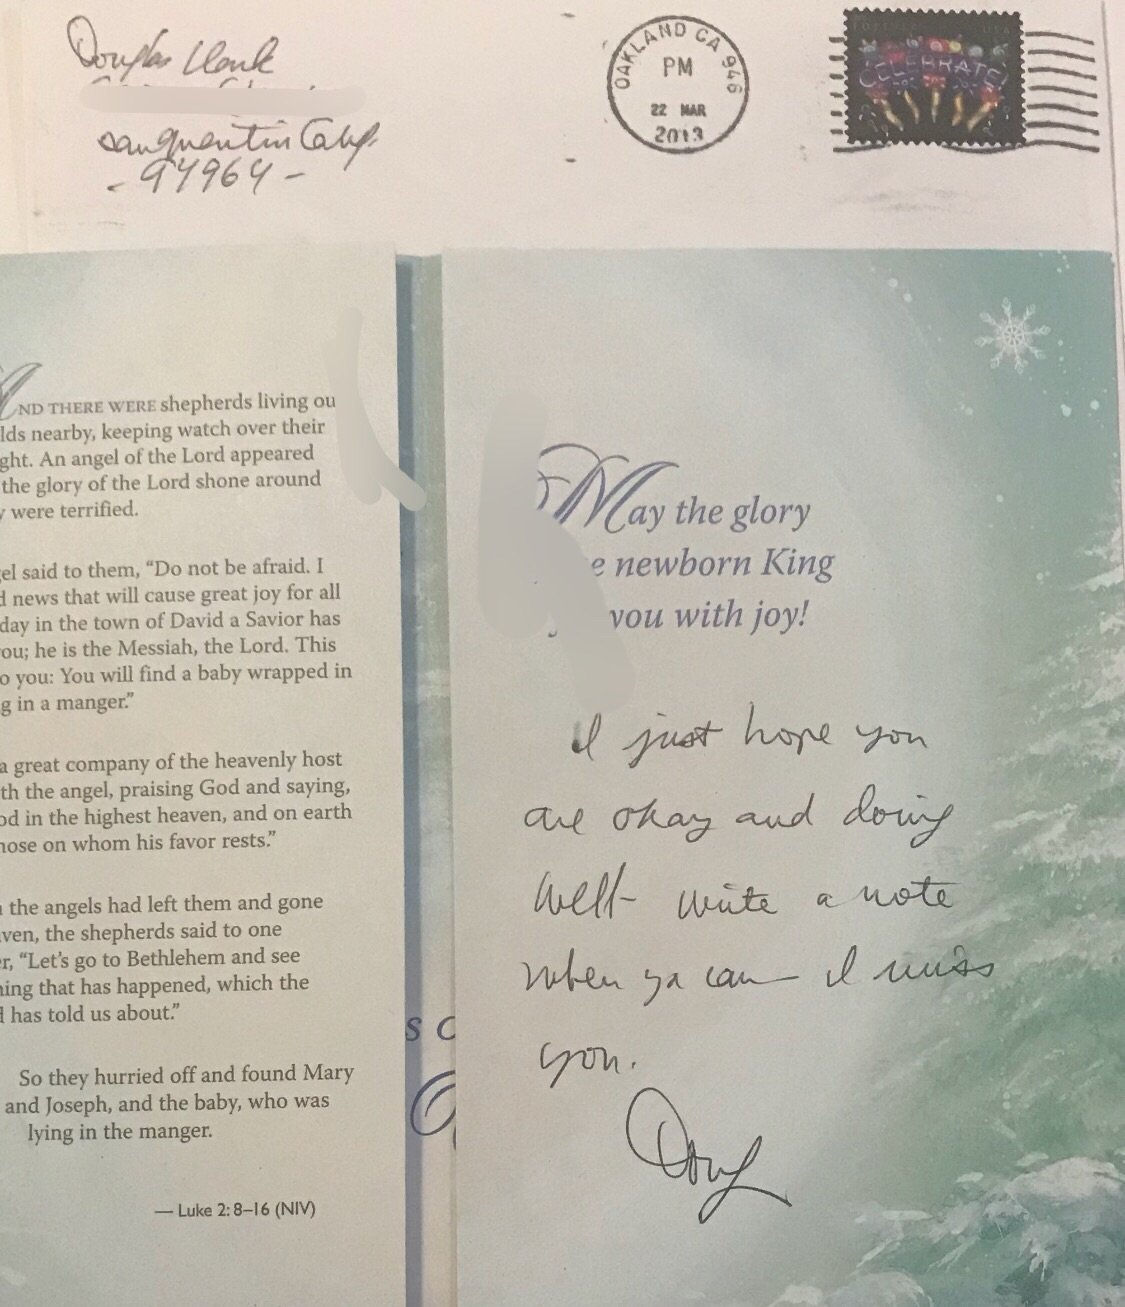 Douglas Clark
sanquentin Calif.
- 94964 -
OAKLAND CA 946
PM
22 MAR
2013
CELEBRATE!
AND THERE WERE shepherds living ou
lds nearby, keeping watch over their
ght. An angel of the Lord appeared
the glory of the Lord shone around
y were terrified.
el said to them, “Do not be afraid. I
d news that will cause great joy for all
day in the town of David a Savior has
ou; he is the Messiah, the Lord. This
o you: You will find a baby wrapped in
g in a manger.”
a great company of the heavenly host
th the angel, praising God and saying,
od in the highest heaven, and on earth
hose on whom his favor rests.”
the angels had left them and gone
ven, the shepherds said to one
er, “Let’s go to Bethlehem and see
hing that has happened, which the
d has told us about.”
So they hurried off and found Mary
and Joseph, and the baby, who was
lying in the manger.
— Luke 2:8–16 (NIV)
May the glory
e newborn King
you with joy!
I just hope you
are okay and doing
well- write a note
when ya can- I miss
you.
Doug